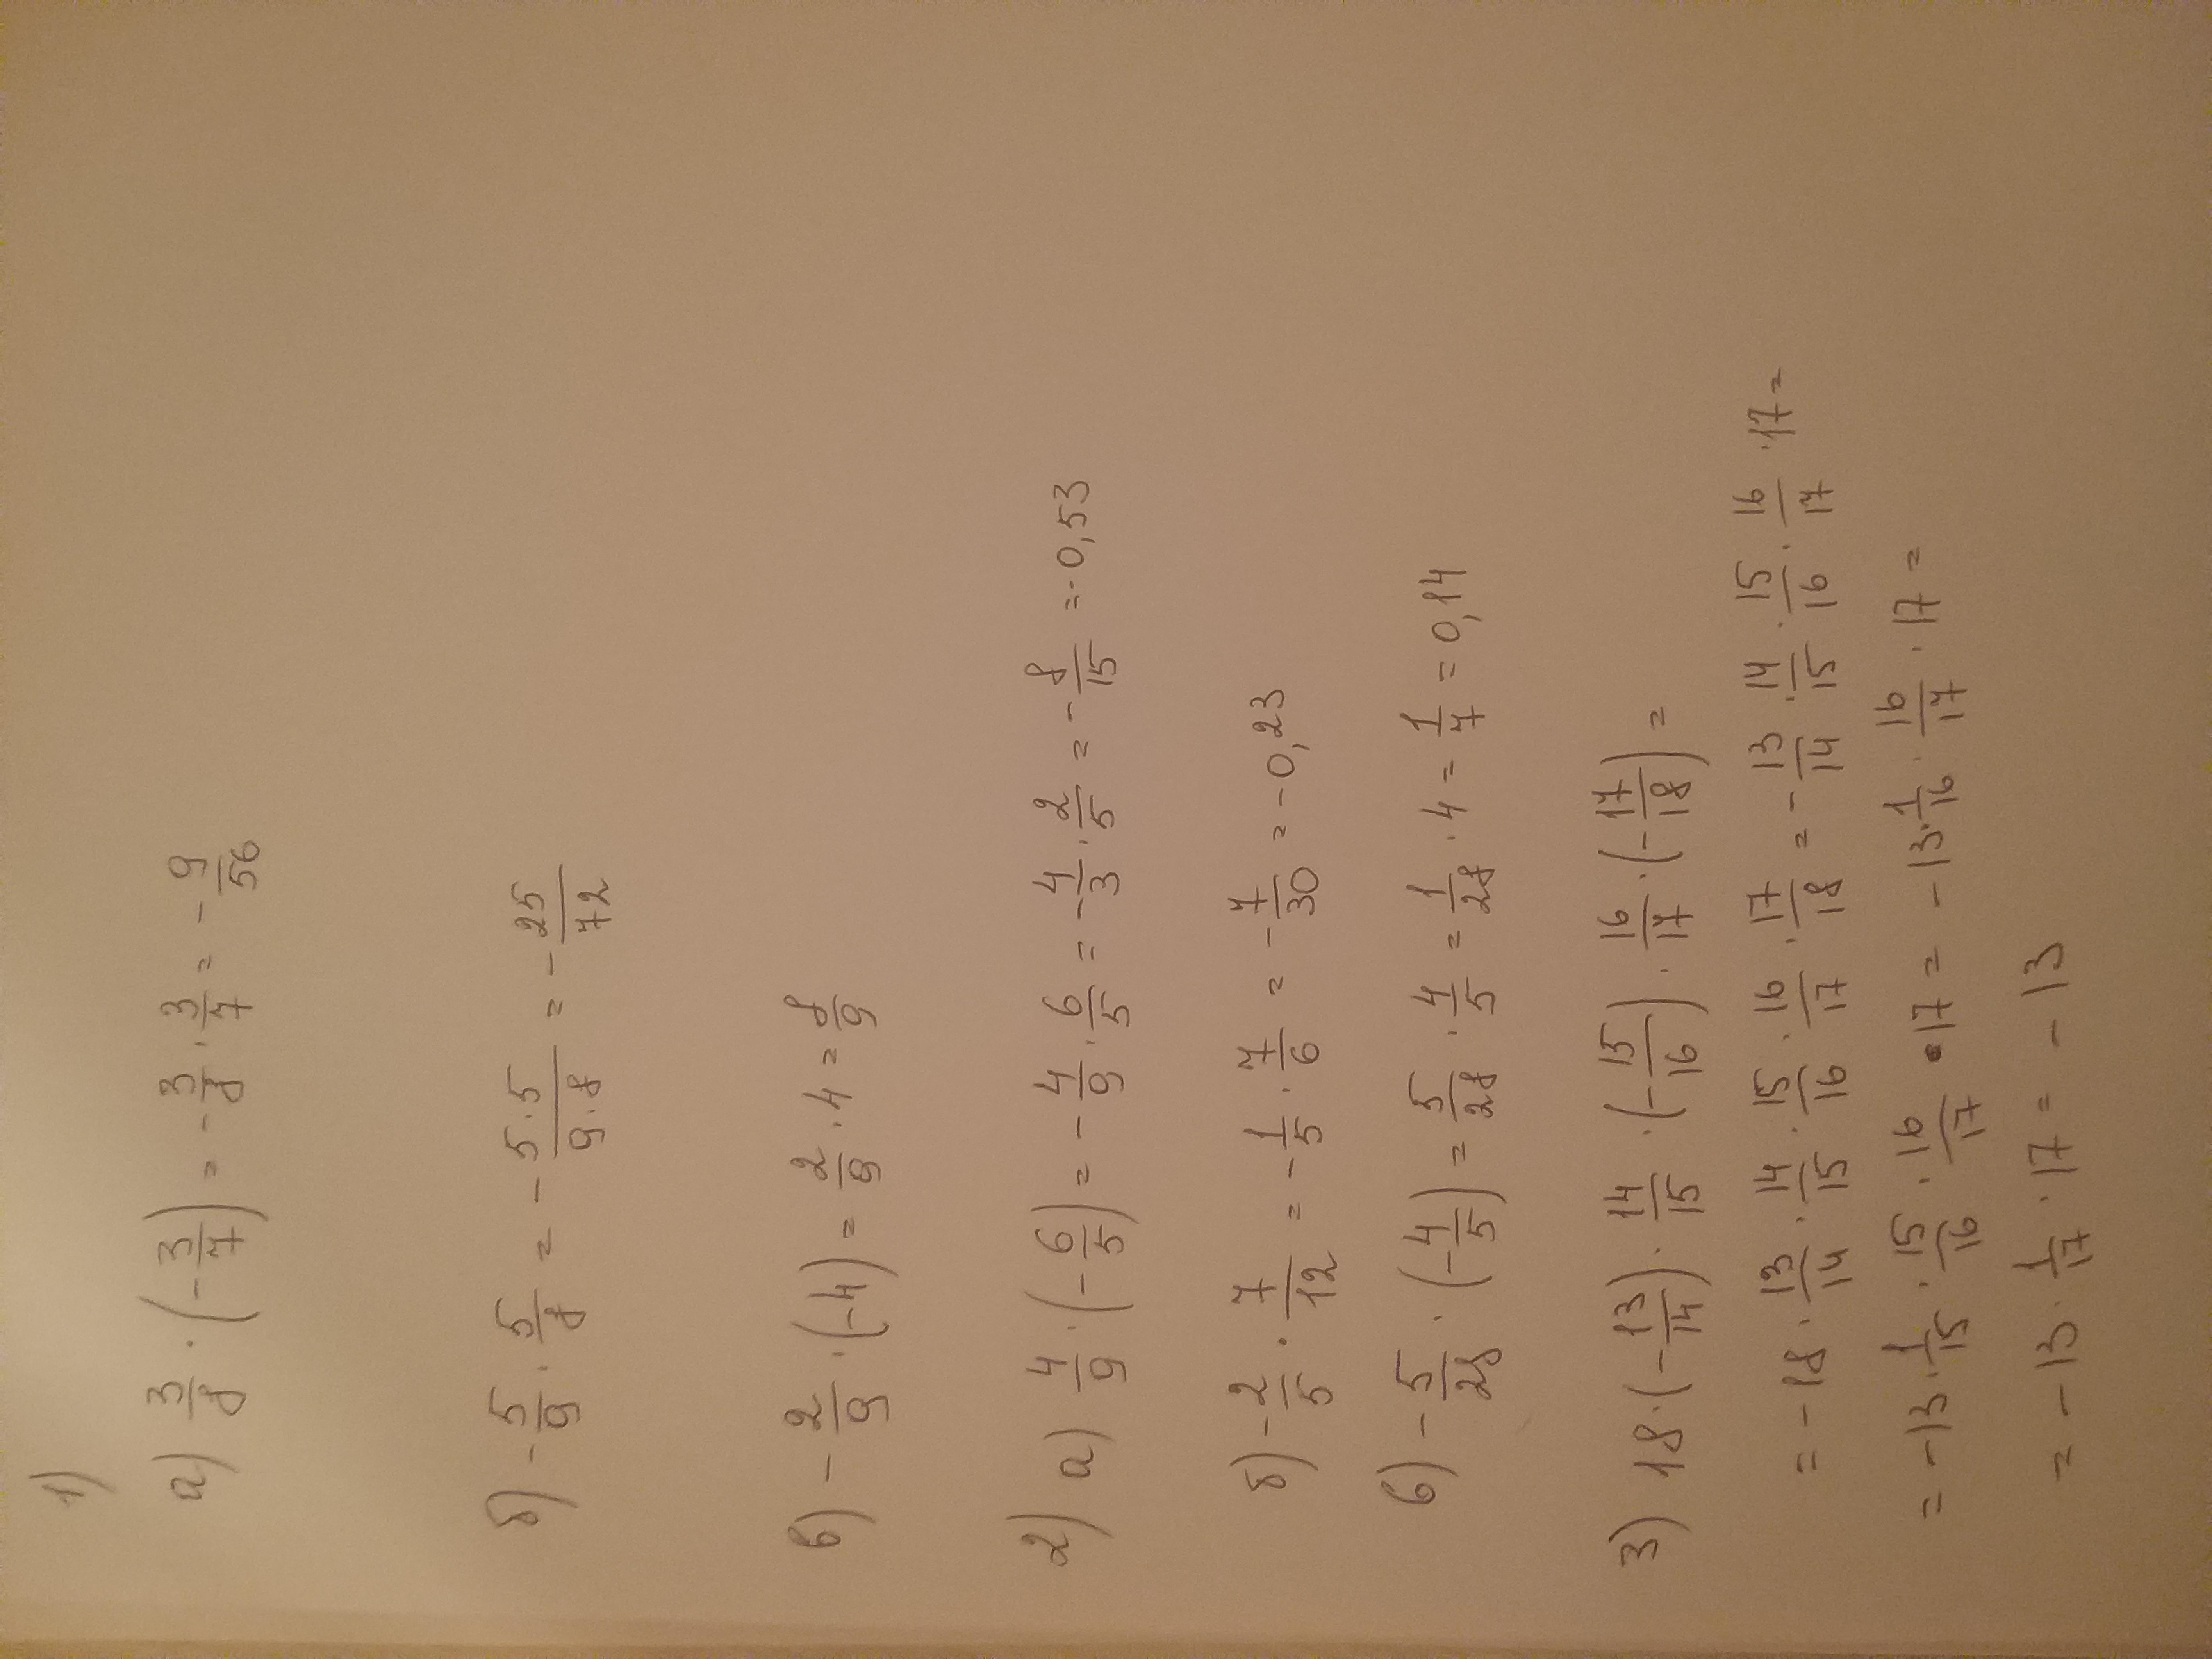 1)
а) 3/8 · (-3/7) = -3/8 · 3/7 = -9/56
б) -5/9 · 5/8 = -5·5/9·8 = -25/72
в) -2/9 · (-4) = 2/9 · 4 = 8/9
2) а) 4/9 · (-6/5) = -4/9 · 6/5 = -4/3 · 2/5 = -8/15 = -0,53
б) -2/5 · 7/12 = -1/5 · 7/6 = -7/30 = -0,23
в) -5/28 · (-4/5) = 5/28 · 4/5 = 1/28 · 4 = 1/7 = 0,14
3) 18 · (-13/14) · 14/15 · (-15/16) · 16/17 · (-17/18) =
= -18 · 13/14 · 14/15 · 15/16 · 16/17 · 17/18 = -13/14 · 14/15 · 15/16 · 16/17 · 17 =
= -13 · 1/15 · 15/16 · 16/17 · 17 = -13 · 1/16 · 16/17 · 17 =
= -13 · 1/17 · 17 = -13